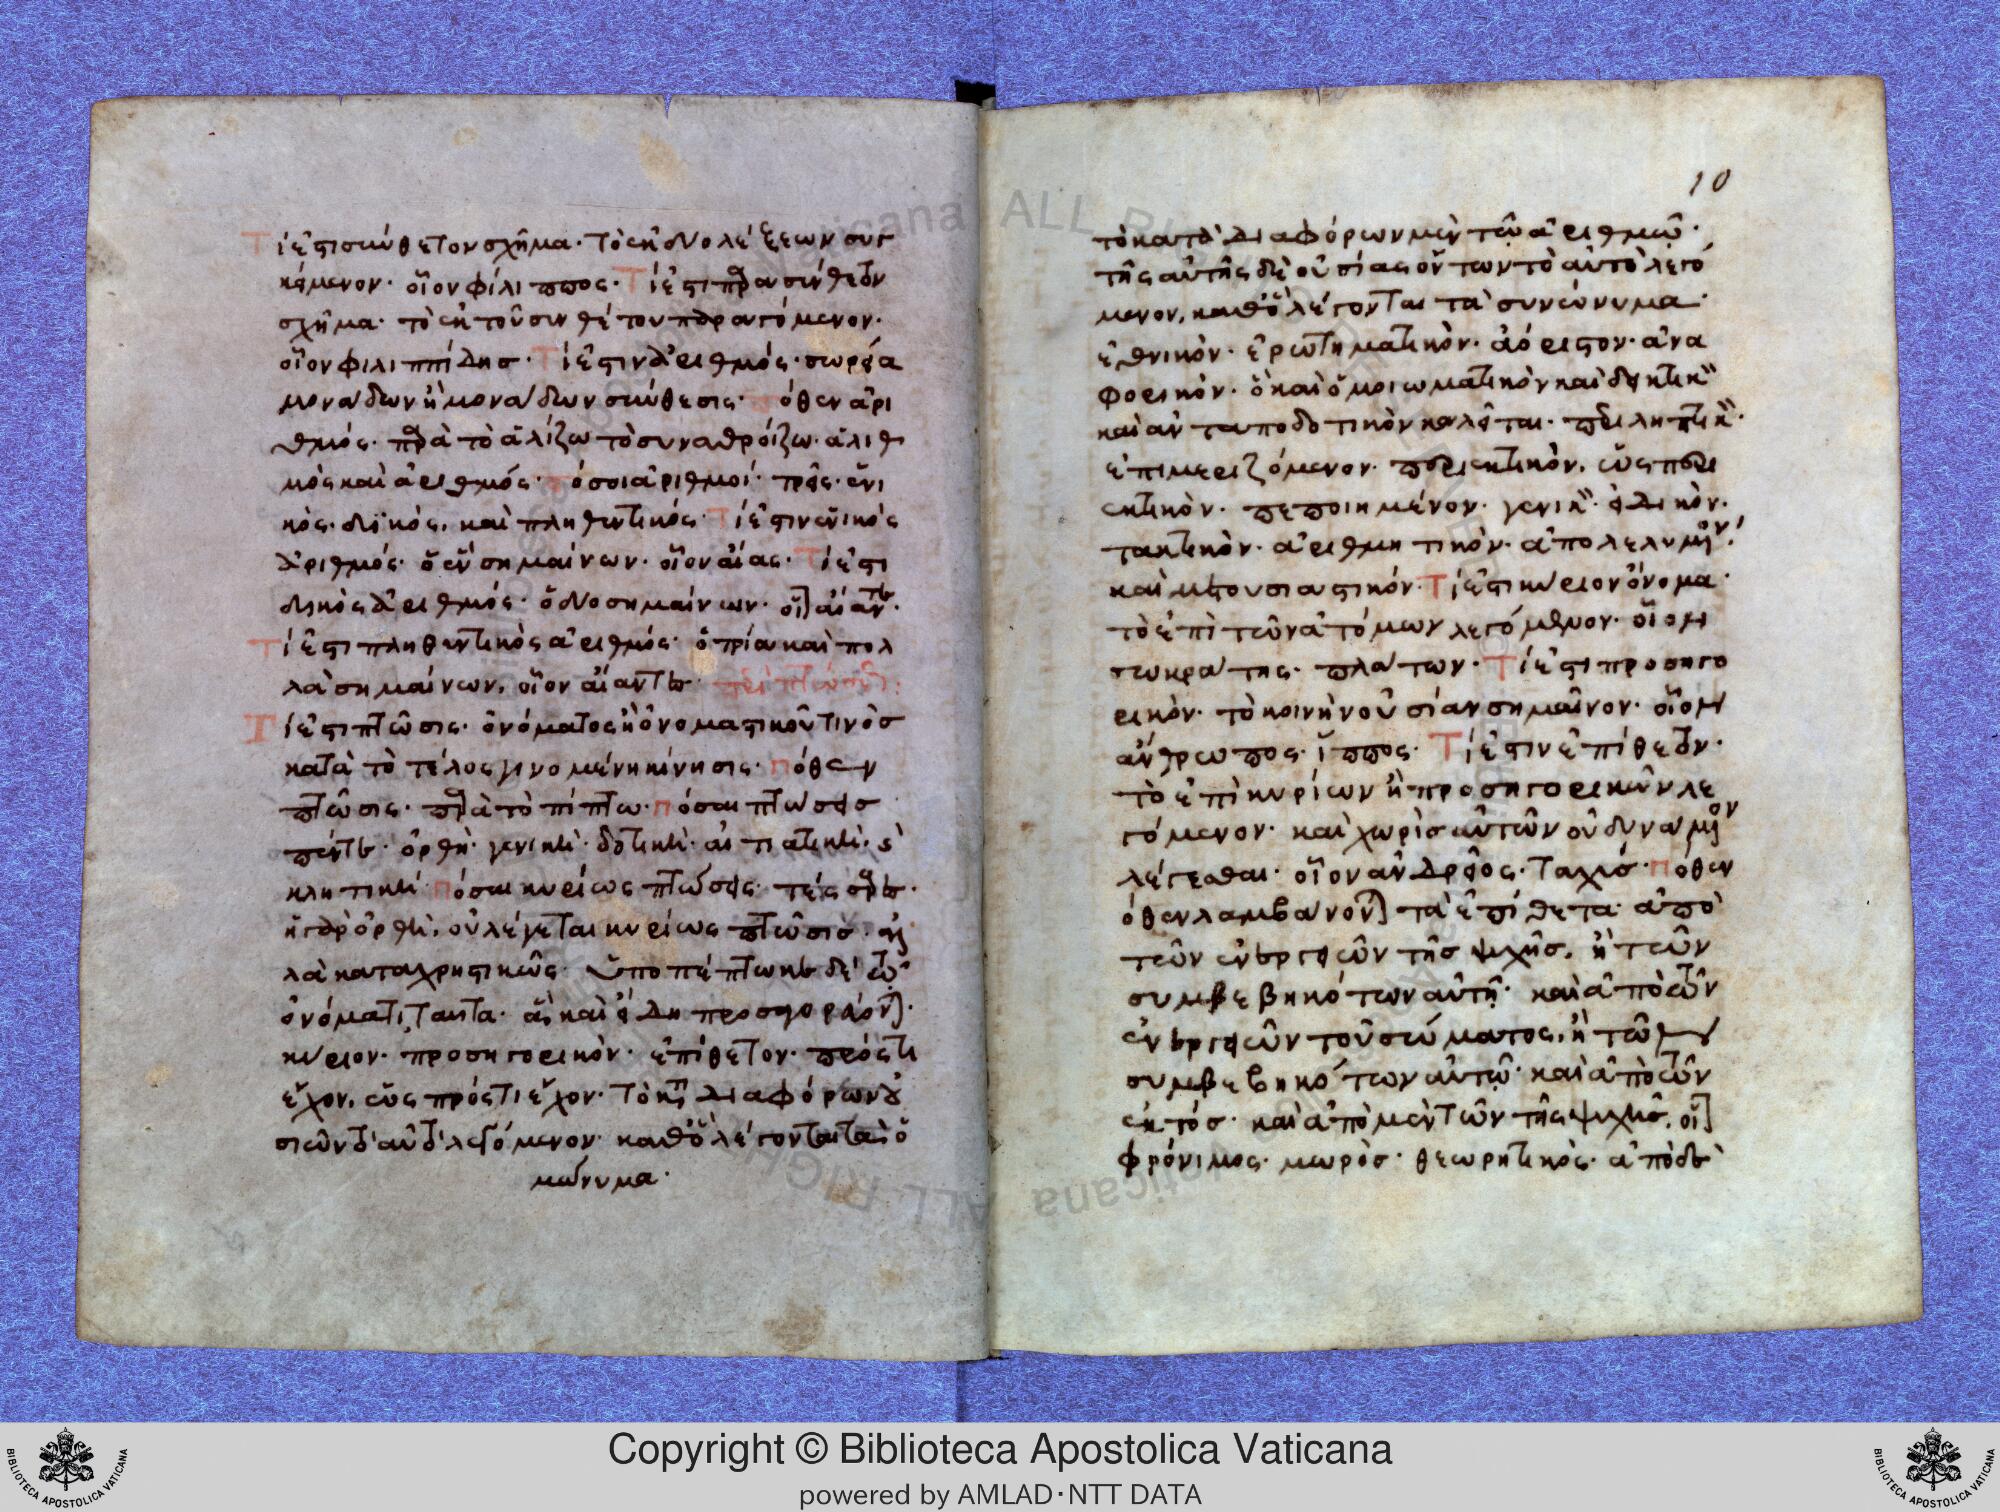 Τί ἐστι σύνθετον σχῆμα· τὸ ἐκ δύο λέξεων συγ
κείμενον· οἷον φίλιππος· Τί ἐστι παρασύνθετον
σχῆμα· τὸ ἐκ τοῦ συνθέτου παραγόμενον·
οἷον φιλιππίδης· Τί ἐστιν ἀριθμός· σωρεία
μονάδων ἢ μονάδων σύνθεσις· πόθεν ἀρι
θμός· παρὰ τὸ ἀλίζω τὸ συναθροίζω· ἀλιθ
μὸς καὶ ἀριθμός· πόσοι ἀριθμοί· τρεῖς· ἑνι
κός· δυϊκός, καὶ πληθυντικός· Τί ἐστιν ἑνικὸς
ἀριθμός· ὁ ἓν σημαίνων· οἷον αἴας· Τί ἐστι
δυικὸς ἀριθμός· ὁ δύο σημαίνων· οἷον αἴαντε·
Τί ἐστι πληθυντικὸς ἀριθμός· ὁ τρία καὶ πολ
λὰ σημαίνων, οἷον αἴαντες· περὶ πτώσεων:
Τί ἐστι πτῶσις· ὀνόματος ἢ ὀνομαστικοῦ τινὸς
κατὰ τὸ τέλος γινομένη κίνησις· πόθεν
πτῶσις· παρὰ τὸ πίπτω· πόσαι πτώσεις
πέντε· ὀρθή· γενική· δοτική· αἰτιατική· καὶ
κλητική· πόσαι κυρίως πτώσεις· τέσσαρες·
ἡ γὰρ ὀρθή, οὐ λέγεται κυρίως πτῶσις· ἀλ
λὰ καταχρηστικῶς· Ὑποπέπτωκε δὲ τῷ
ὀνόματι ταῦτα· ἃ καὶ εἴδη προσαγορεύονται·
κύριον· προσηγορικόν· ἐπίθετον· πρός τι
ἔχον, ὡς πρός τι ἔχον· τὸ κατὰ διαφόρων οὐ
σιῶν τὸ αὐτὸ λεγόμενον· καθὸ λέγονται τὰ ὁ
μώνυμα·
10
τὸ κατὰ διαφόρων μὲν τῷ ἀριθμῷ·
τῆς αὐτῆς δὲ οὐσίας ὄντων τὸ αὐτὸ λεγό
μενον, καθὸ λέγονται τὰ συνώνυμα·
ἐθνικόν· ἐρωτηματικόν· ἀόριστον· ἀνα
φορικόν· ὃ καὶ ὁμοιωματικὸν καὶ δεικτικὸν
καὶ ἀνταποδοτικὸν καλεῖται· περιληπτικόν·
ἐπιμεριζόμενον· περιεκτικόν, ὡς περι
εκτικόν· πεποιημένον· γενικόν· εἰδικόν·
τακτικόν· ἀριθμητικόν· ἀπολελυμένον·
καὶ μετουσιαστικόν· Τί ἐστι κύριον ὄνομα·
τὸ ἐπὶ τῶν ἀτόμων λεγόμενον· οἷον
σωκράτης· πλάτων· Τί ἐστι προσηγο
ρικόν· τὸ κοινὴν οὐσίαν σημαῖνον· οἷον
ἄνθρωπος· ἵππος· Τί ἐστιν ἐπίθετον·
τὸ ἐπὶ κυρίων ἢ προσηγορικῶν λε
γόμενον· καὶ χωρὶς αὐτῶν οὐ δυνάμενον
λέγεσθαι· οἷον ἀνδρεῖος· ταχύς· Πόθεν
ὅθεν λαμβάνονται τὰ ἐπίθετα· ἀπὸ
τῶν ἐνεργειῶν τῆς ψυχῆς, ἢ τῶν
συμβεβηκότων αὐτῇ· καὶ ἀπὸ τῶν
ἐνεργειῶν τοῦ σώματος, ἢ τῶν
συμβεβηκότων αὐτῷ· καὶ ἀπὸ τῶν
ἐκτός· καὶ ἀπὸ μὲν τῶν τῆς ψυχῆς, οἷον
φρόνιμος· μωρός· θεωρητικός· ἀπὸ δὲ
Copyright © Biblioteca Apostolica Vaticana
powered by AMLAD·NTT DATA